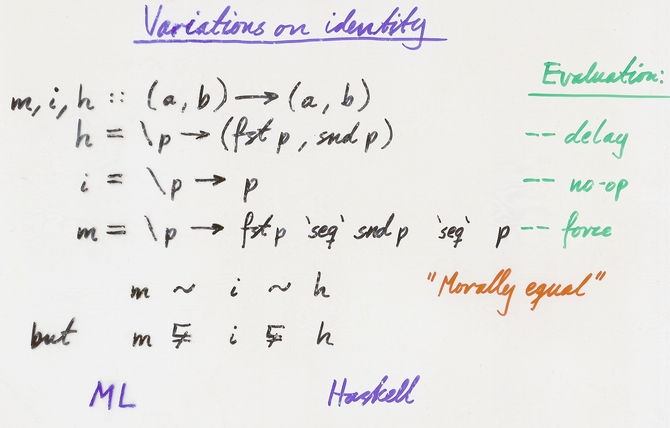 Variations on identity
m, i, h :: (a, b) → (a, b)
Evaluation:
h = \p → (fst p, snd p) -- delay
i = \p → p -- no-op
m = \p → fst p `seq` snd p `seq` p -- force
m ~ i ~ h "Morally equal"
but m ⋤ i ⋤ h
ML Haskell